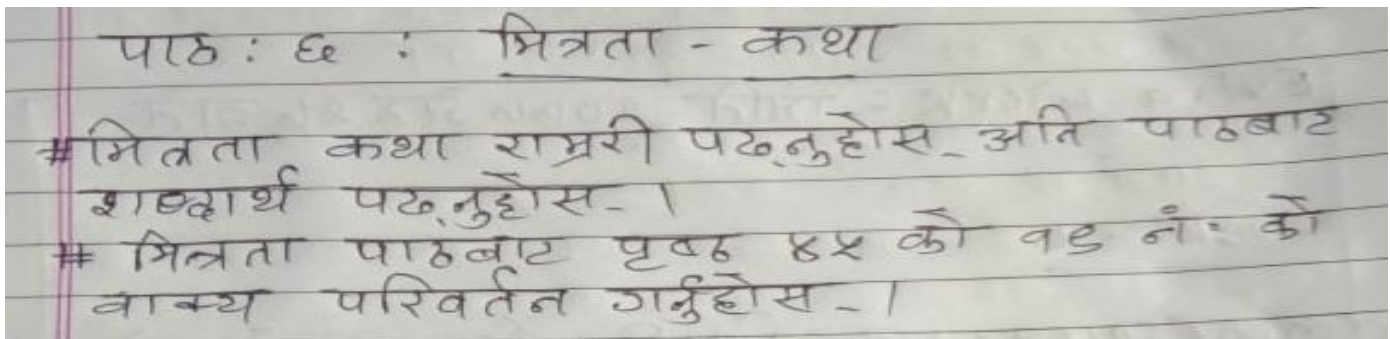 पाठ : ६ : मित्रता - कथा
#मित्रता कथा राम्ररी पढ्नुहोस् अनि पाठबाट
शब्दार्थ पढ्नुहोस् ।
# मित्रता पाठबाट पृष्ठ ४५ को वड नं. को
वाक्य परिवर्तन गर्नुहोस् ।